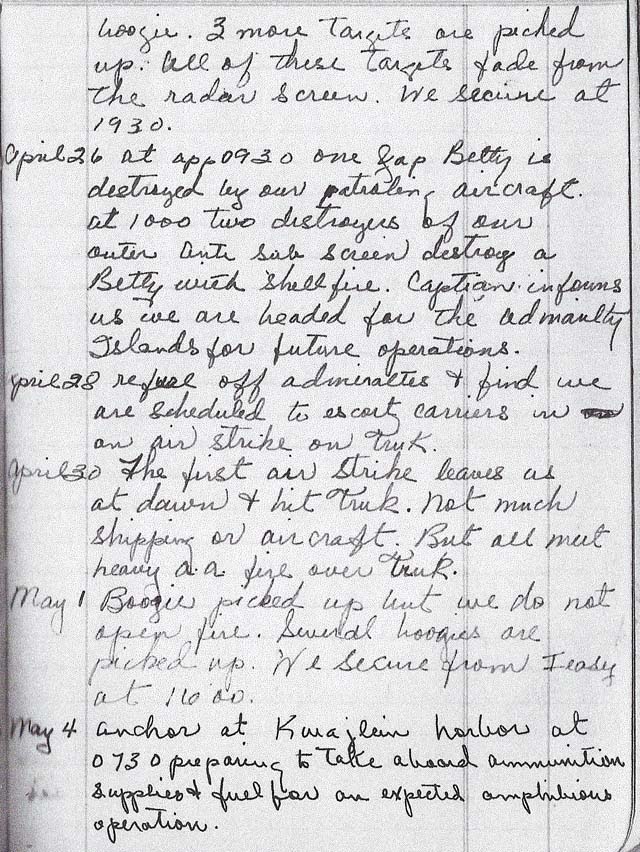 boogie. 3 more targets are picked
up. All of these targets fade from
the radar screen. We secure at
1930.
April 26 at app 0930 one Jap Betty is
destroyed by our patroleng aircraft.
at 1000 two destroyers of our
outer anti sub screen destroy a
Betty with shellfire. Captian informs
us we are headed for the admaulty
Islands for future operations.
April 28 refuel off admiraltes & find we
are scheduled to escort carriers in
on air strike on Truk.
April 30 The first air strike leaves us
at dawn & hit Truk. Not much
shipping or aircraft. But all meet
heavy a.a fire over Truk.
May 1 Boogie picked up but we do not
open fire. Several boogies are
picked up. We secure from I easy
at 1600.
May 4 anchor at Kwajlein harbor at
0730 preparing to take aboard ammunition
supplies & fuel for an expected amphibious
operation.